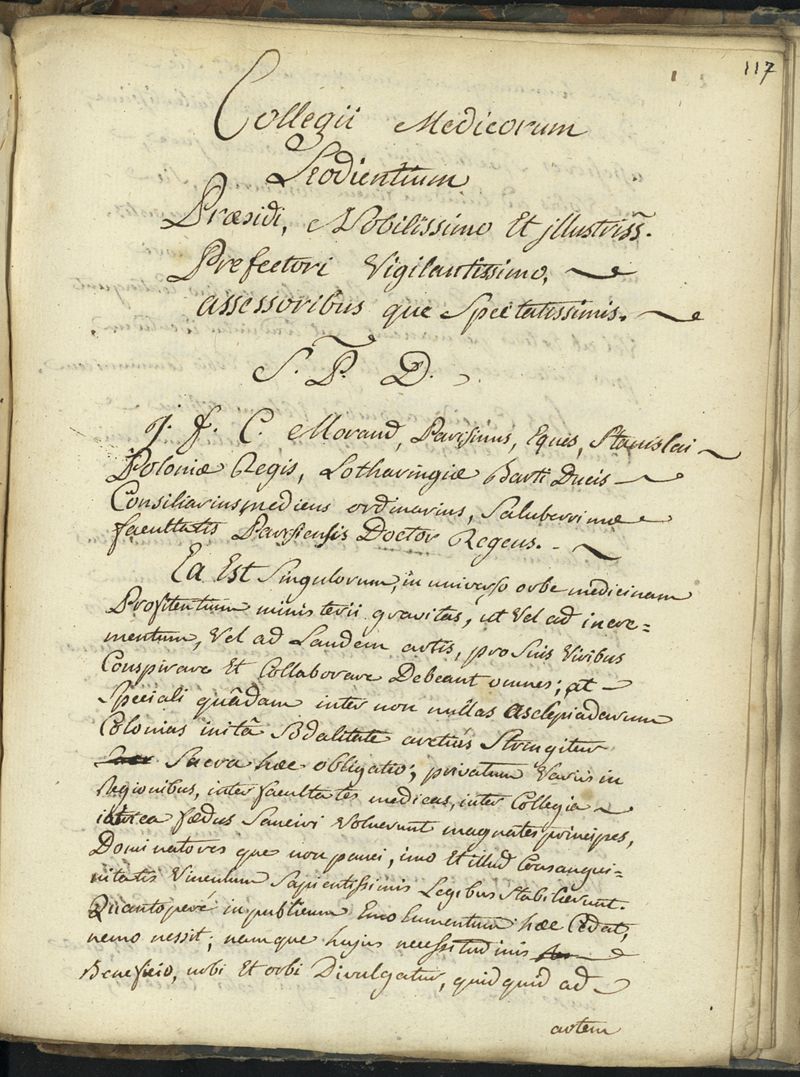 117
Collegii Medicorum
Leodientium
Præsidi, Nobilissimo Et illustriss̃.
Prefectori Vigilantissimo,
assessoribus que Spectatissimis.
S. P. D.
J. f. C. Morand, Parisinus, Eques, Stanislai
Poloniæ Regis, Lotharingiæ Barri Ducis
Consiliarius medicus ordinarius, Saluberrimæ
facultatis Parisiensis Doctor Regens.
Ea Est Singulorum, in universo orbe medicinam
Profitentium ministerii gravitas, ut Vel ad incre=
mentum, Vel ad Laudem artis, pro Suis Viribus
Conspirare Et Collaborare Debeant omnes; at
Speciali quâdam inter non nullas asclepiadarum
Colonias initâ Sodalitate arctius Stringitur
Sacra hæc obligatio; privatum Variis in
Regionibus, inter facultates medicas, inter Collegia
iatrica fædus Sanciri Voluerunt magnates principes,
Dominatores que non pauci, imo Et illud Consangui=
nitatis Vinculum Sapientissimis Legibus Stabilierunt.
Quantopere in publicum Emolumentum hæc Cedat,
nemo nescit; namque hujus necessitudinis
Beneficio, urbi Et orbi Divulgatur, quidquid ad
artem